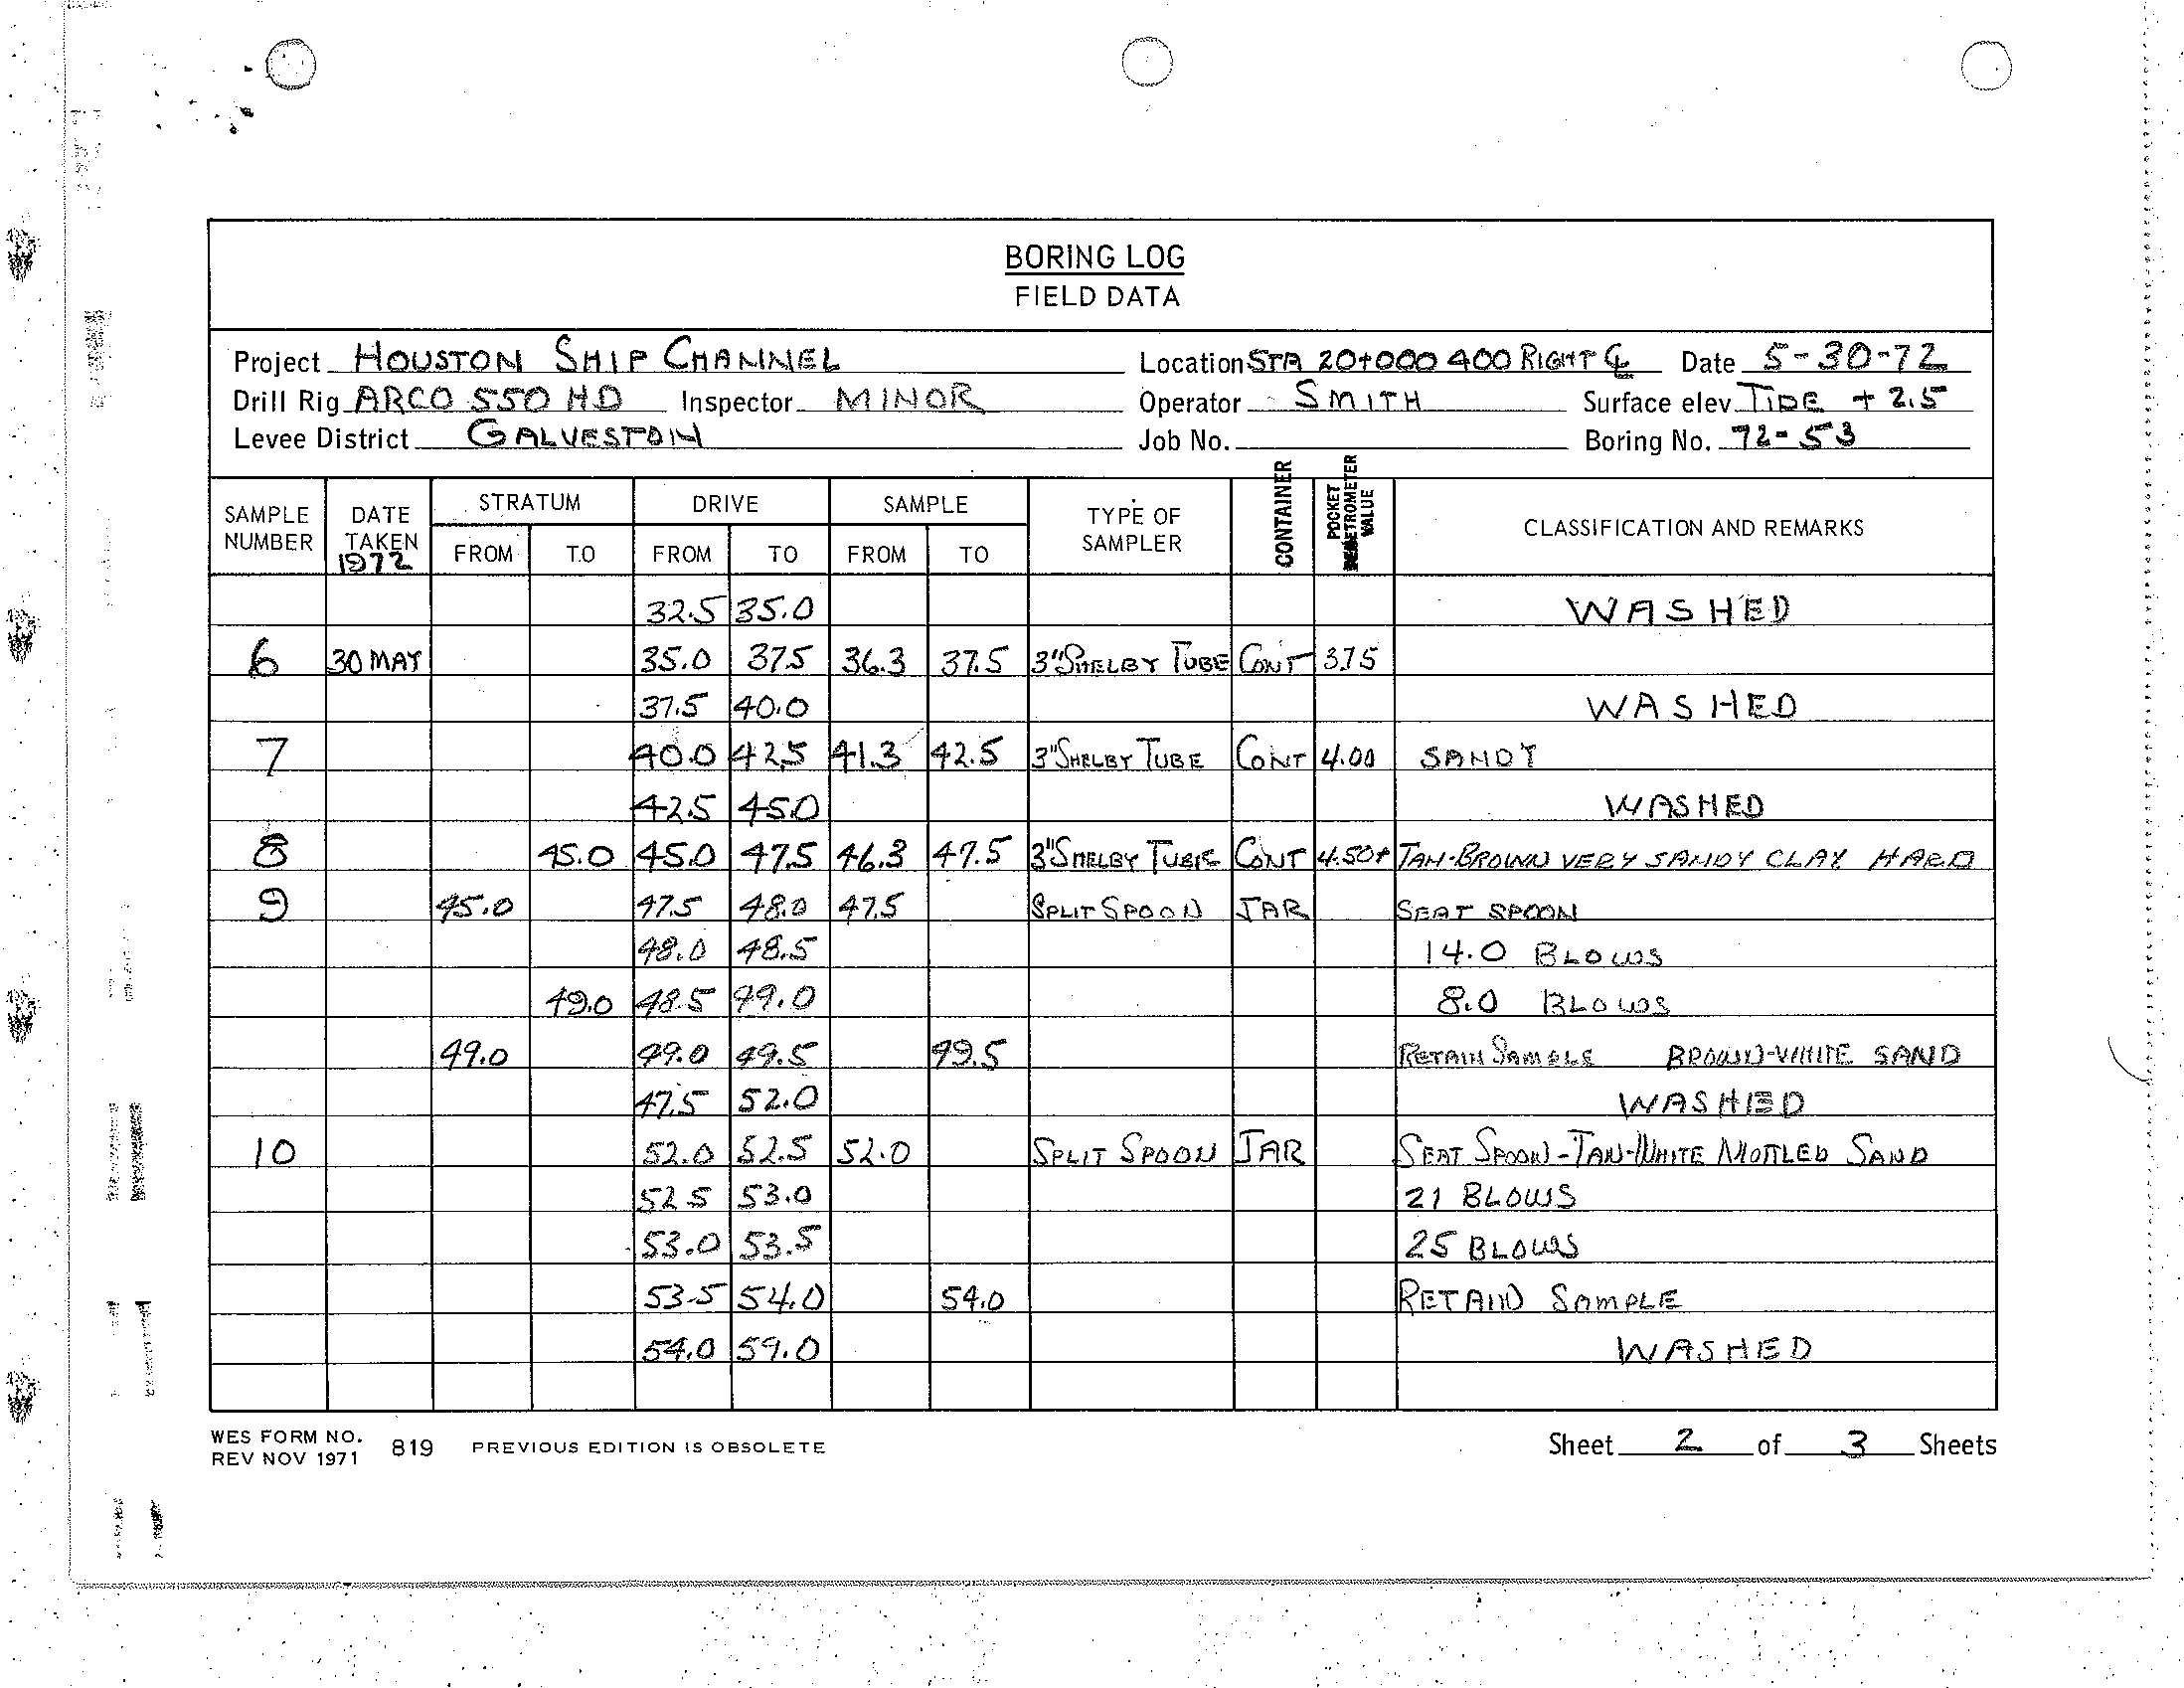 BORING LOG
FIELD DATA
Project HOUSTON SHIP CHANNEL Location STA 20+000 400 RIGHT ℄ Date 5-30-72
Drill Rig ARCO 550 HD Inspector MINOR Operator SMITH Surface elev. TIDE + 2.5
Levee District GALVESTON Job No. Boring No. 72-53
SAMPLE NUMBER DATE TAKEN 1972 STRATUM DRIVE SAMPLE TYPE OF SAMPLER CONTAINER POCKET PENETROMETER VALUE CLASSIFICATION AND REMARKS
FROM TO FROM TO FROM TO
32.5 35.0 WASHED
6 30 MAY 35.0 37.5 36.3 37.5 3" SHELBY TUBE CONT 3.75
37.5 40.0 WASHED
7 40.0 42.5 41.3 42.5 3" SHELBY TUBE CONT 4.00 SANDY
42.5 45.0 WASHED
8 45.0 45.0 47.5 46.3 47.5 3" SHELBY TUBE CONT 4.50+ TAN-BROWN VERY SANDY CLAY HARD
9 45.0 47.5 48.0 47.5 SPLIT SPOON JAR SEAT SPOON
48.0 48.5 14.0 BLOWS
49.0 48.5 49.0 8.0 BLOWS
49.0 49.0 49.5 49.5 RETAIN SAMPLE BROWN-WHITE SAND
47.5 52.0 WASHED
10 52.0 52.5 52.0 SPLIT SPOON JAR SEAT SPOON-TAN-WHITE MOTTLED SAND
52.5 53.0 21 BLOWS
53.0 53.5 25 BLOWS
53.5 54.0 54.0 RETAIN SAMPLE
54.0 59.0 WASHED
WES FORM NO. 819 PREVIOUS EDITION IS OBSOLETE Sheet 2 of 3 Sheets
REV NOV 1971